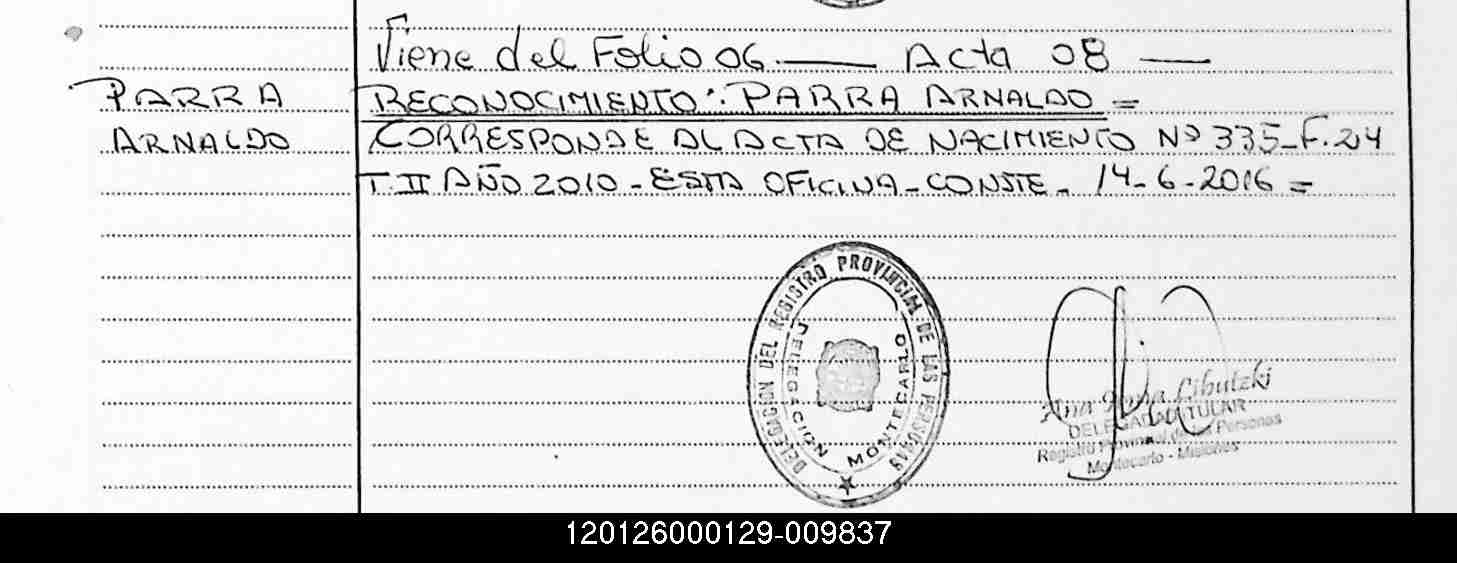 Viene del Folio 06 — Acta 08 —
PARRA
ARNALDO
RECONOCIMIENTO: PARRA ARNALDO =
CORRESPONDE AL ACTA DE NACIMIENTO Nº 335-F.24
T.II AÑO 2010 - ESTA OFICINA - CONSTE - 14-6-2016 =
DELEGACION DEL REGISTRO PROVINCIAL DE LAS PERSONAS
DELEGACION MONTECARLO
Ana Libutzki
DELEGADA TITULAR
Registro Provincial de las Personas
Montecarlo - Misiones
120126000129-009837